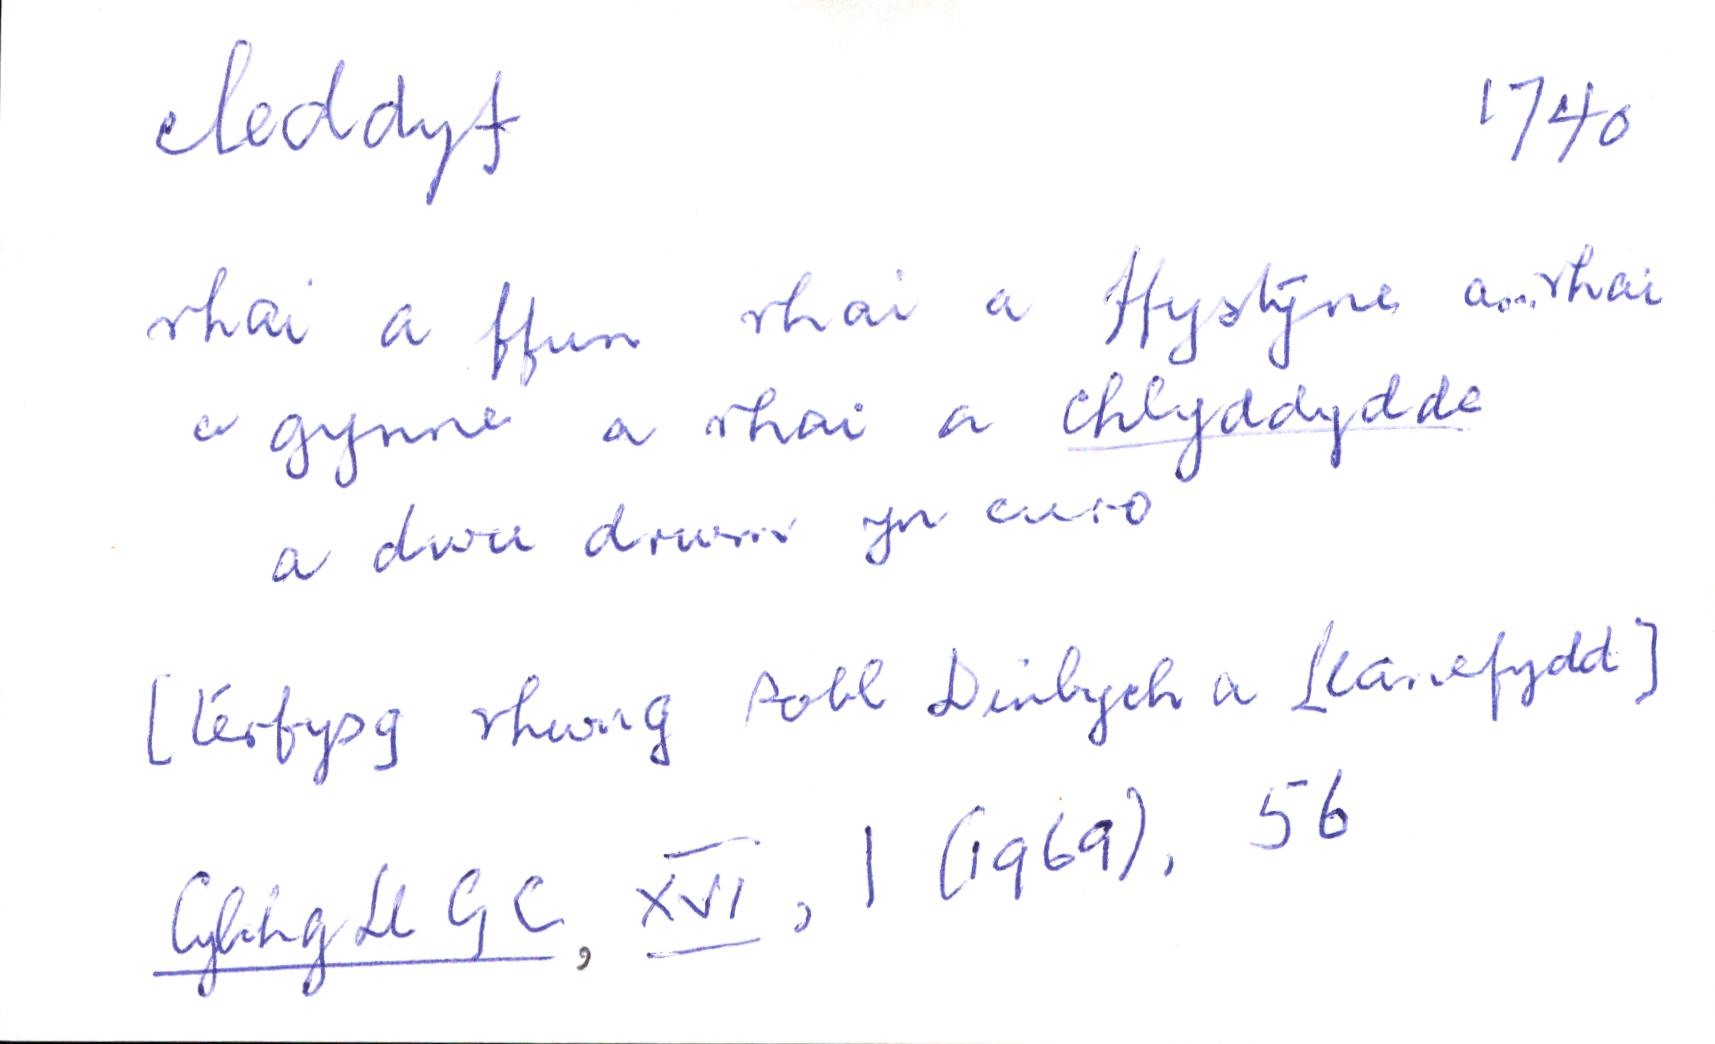 cleddyf 1740
rhai a ffun rhai a ffystŷne a...rhai
a gynne a rhai a chlyddydde
a dwu drwm yn curo
[Terfysg rhwng pobl Dinbych a Llanefydd]
CylchgLlGC, XVI, 1 (1969), 56